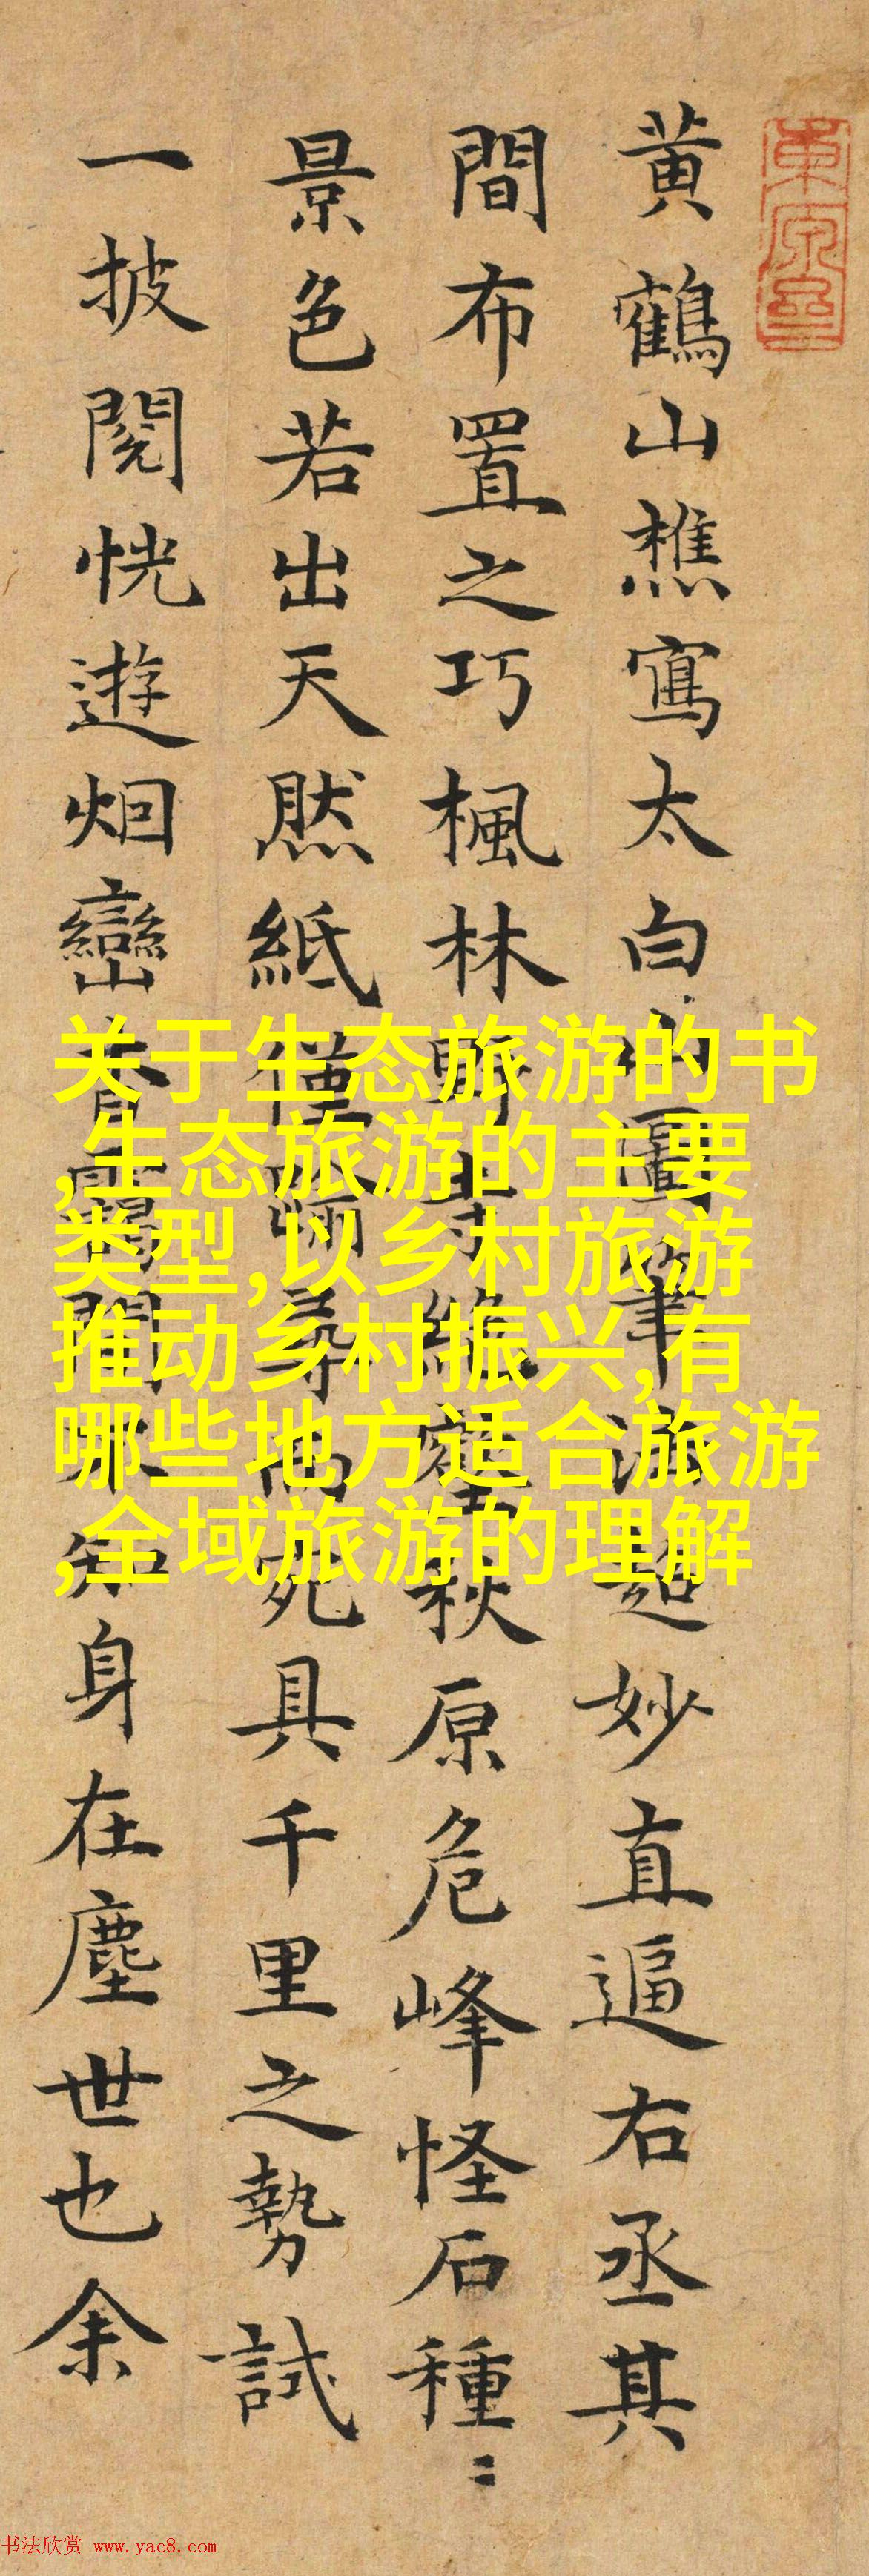 黄鶴山樵寫太白山圖筆法超妙直逼右丞其
間布置之巧楓林野寺絶壑秋原危峰怪石種〻
景色若出天然紙僅踰尋宛具千里之勢試
一披閱恍遊烟巒杳靄間不知身在塵世也余
关于生态旅游的书
,生态旅游的主要
类型,以乡村旅游
推动乡村振兴,有
哪些地方适合旅游
,全域旅游的理解
书法欣赏 www.yac8.com